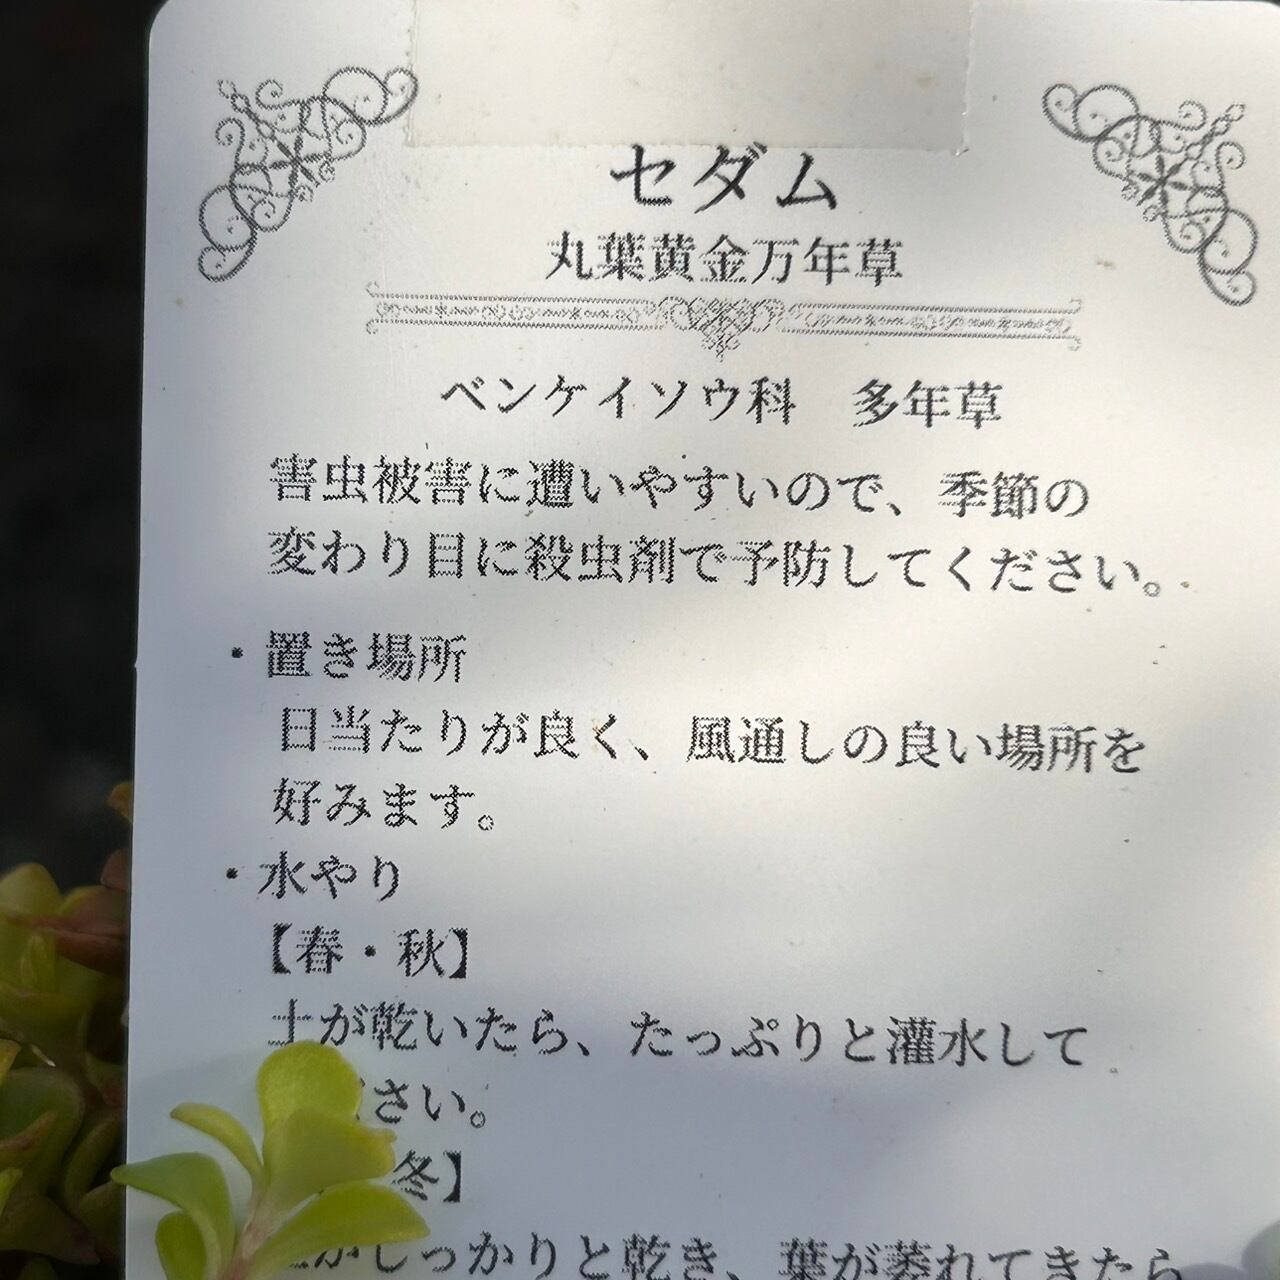 セダム
丸葉黄金万年草
ベンケイソウ科　多年草
害虫被害に遭いやすいので、季節の
変わり目に殺虫剤で予防してください。
・置き場所
日当たりが良く、風通しの良い場所を
好みます。
・水やり
【春・秋】
土が乾いたら、たっぷりと灌水して
さい。
冬】
がしっかりと乾き、葉が萎れてきたら